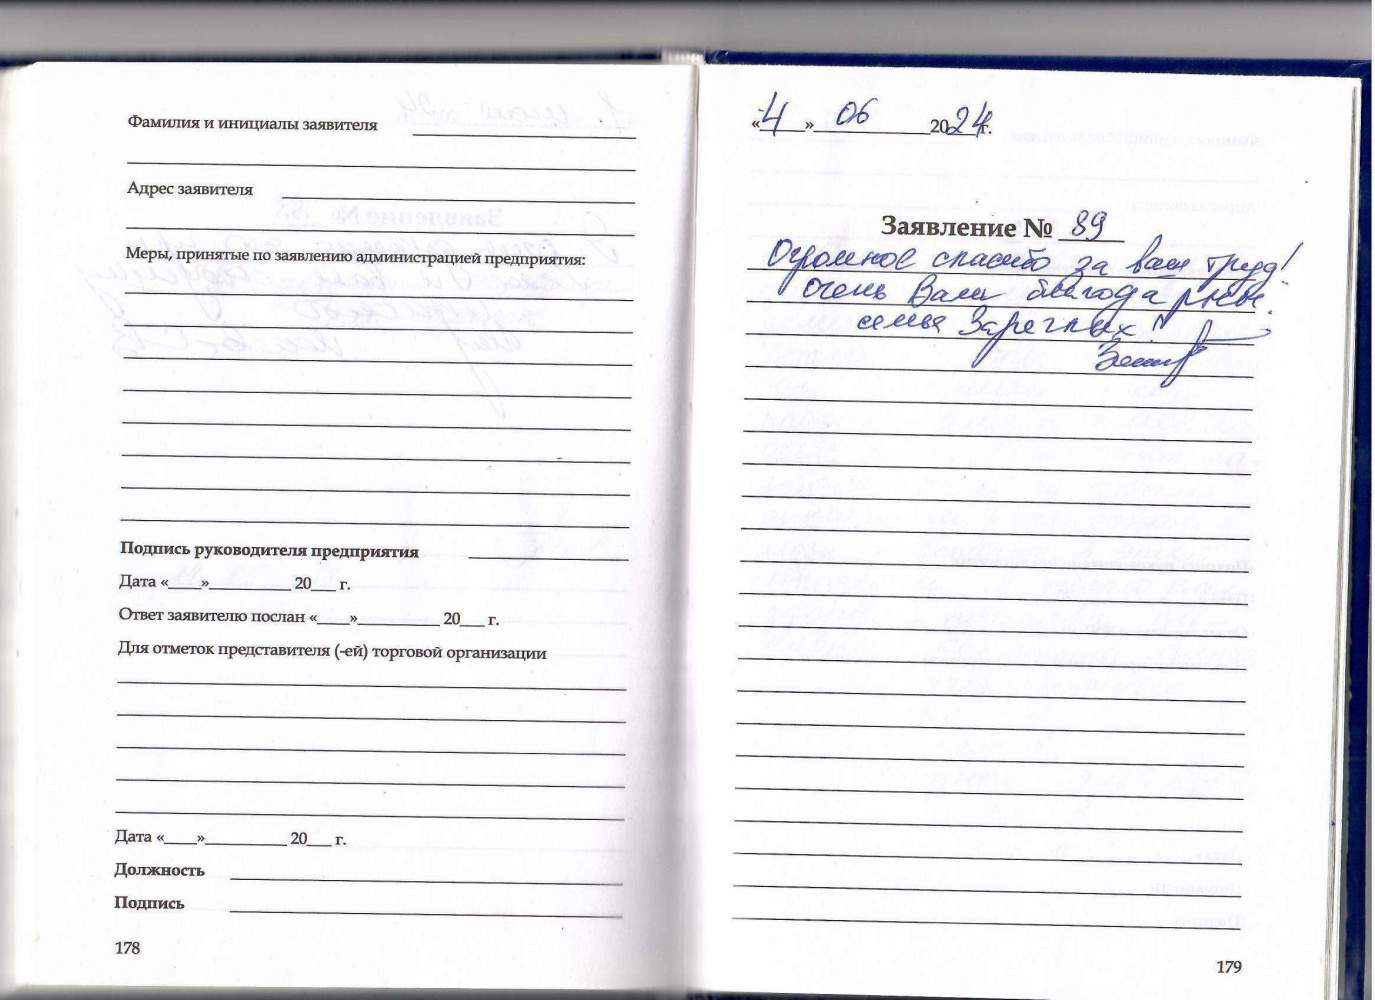 Фамилия и инициалы заявителя
Адрес заявителя
Меры, принятые по заявлению администрацией предприятия:
Подпись руководителя предприятия
Дата «____»__________ 20___ г.
Ответ заявителю послан «____»__________ 20___ г.
Для отметок представителя (-ей) торговой организации
Дата «____»__________ 20___ г.
Должность
Подпись
178
«4» 06 2024 г.
Заявление № 89
Огромное спасибо за ваш труд!
Очень Вам благодарны.
семья
179